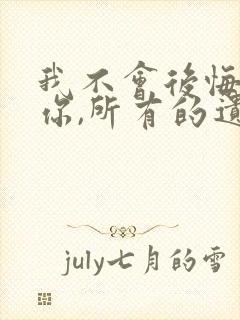 我不會後悔
你,所有的遺
july七月的雪